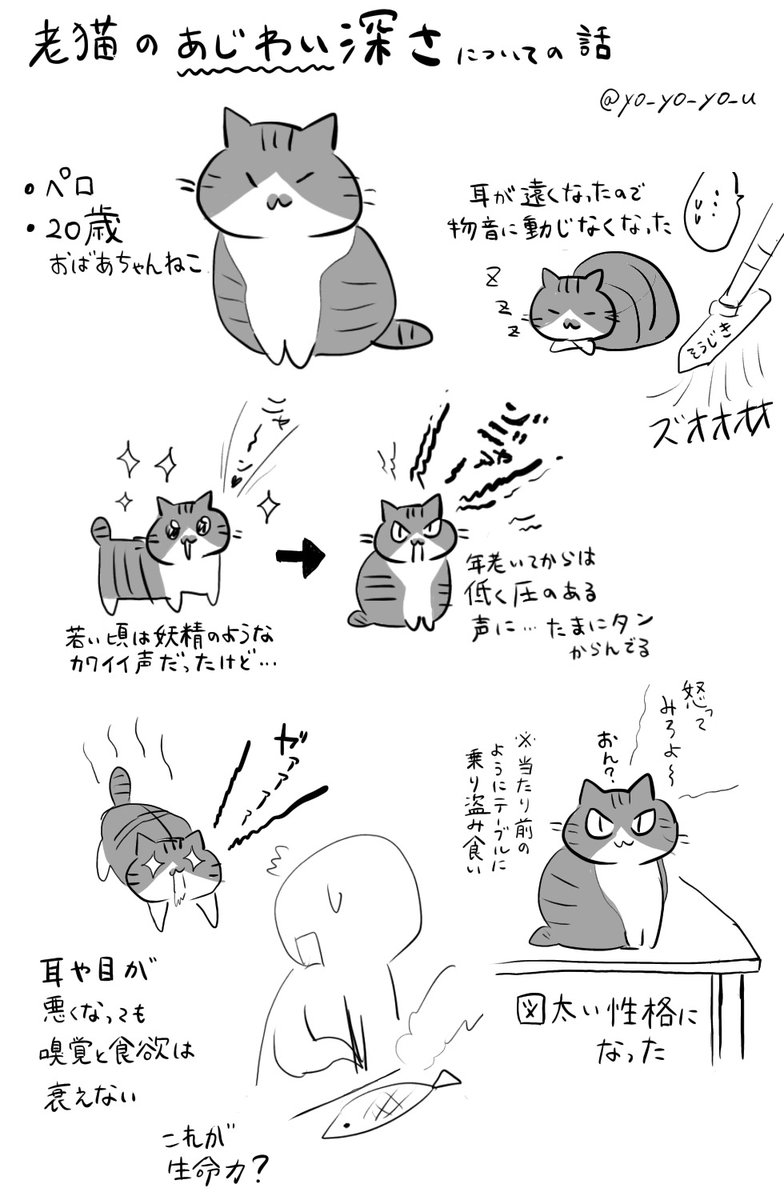 老猫のあじわい深さについての話
@yo_yo_yo_u
・ペロ
・20歳
おばあちゃんねこ
耳が遠くなったので
物音に動じなくなった
z
z
z
そうじき
ズオオオオ
若い頃は妖精のような
カワイイ声だったけど…
年老いてからは
低く圧のある
声に…たまにタン
からんでる
ザァァァ
耳や目が
悪くなっても
嗅覚と食欲は
衰えない
これが
生命力?
怒って
みろよ〜
おん?
※当たり前の
ようにテーブルに
乗り盗み食い
図太い性格に
なった